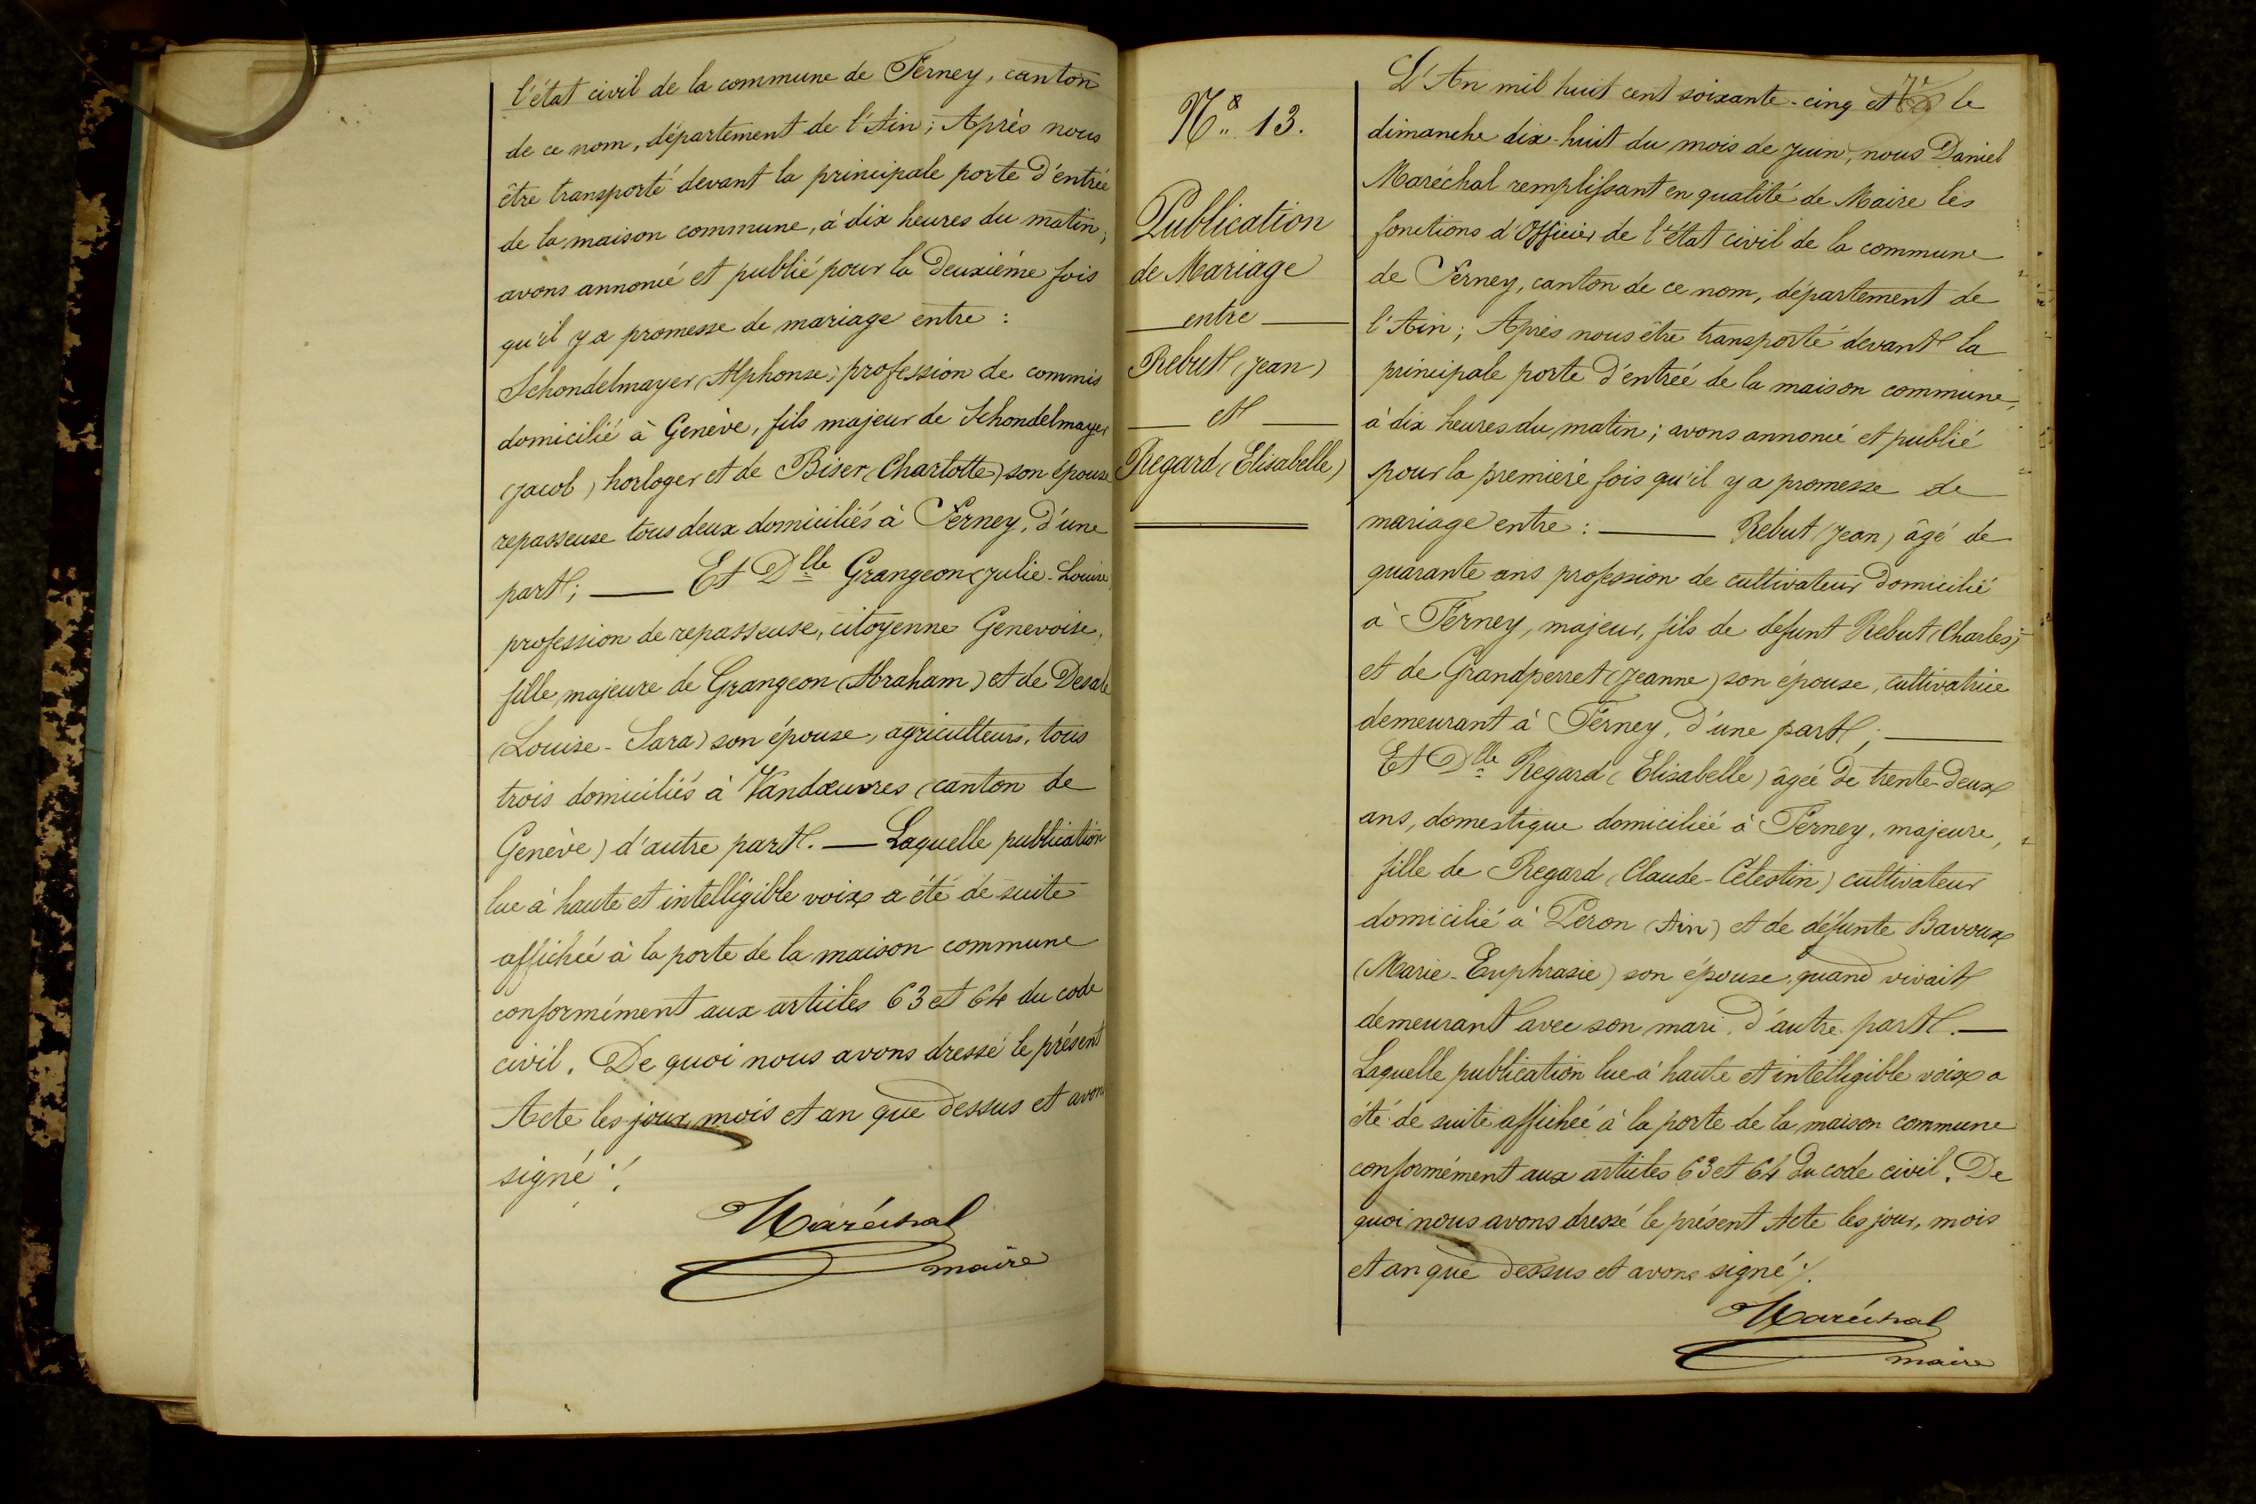 l'état civil de la commune de Ferney, canton
de ce nom, département de l'Ain; Après nous
être transporté devant la principale porte d'entrée
de la maison commune, à dix heures du matin;
avons annoncé et publié pour la deuxième fois
qu'il y a promesse de mariage entre :
Schondelmayer (Alphonse) profession de commis
domicilié à Genève, fils majeur de Schondelmayer
(Jacob) horloger et de Biser (Charlotte) son épouse
repasseuse tous deux domiciliés à Ferney, d'une
part; — Et Dlle Grangeon (Julie-Louise
profession de repasseuse, citoyenne Genevoise,
fille majeure de Grangeon (Abraham) et de
(Louise-Sara) son épouse, agriculteurs, tous
trois domiciliés à Vandœuvres (canton de
Genève) d'autre part. — Laquelle publication
lue à haute et intelligible voix a été de suite
affichée à la porte de la maison commune
conformément aux articles 63 et 64 du code
civil. De quoi nous avons dressé le présent
Acte les jour, mois et an que dessus et avons
signé ./.
Maréchal
maire
No 13.
Publication
de Mariage
— entre —
Rebut (Jean)
— et —
Regard (Elisabelle)
L'An mil huit cent soixante-cinq et le
dimanche dix-huit du mois de Juin, nous Daniel
Maréchal remplissant en qualité de Maire les
fonctions d'Officier de l'état civil de la commune
de Ferney, canton de ce nom, département de
l'Ain; Après nous être transporté devant la
principale porte d'entrée de la maison commune,
à dix heures du matin; avons annoncé et publié
pour la première fois qu'il y a promesse de
mariage entre : — Rebut (Jean) âgé de
quarante ans profession de cultivateur domicilié
à Ferney, majeur, fils de defunt Rebut (Charles)
et de Grandperret (Jeanne) son épouse, cultivatrice
demeurant à Ferney, d'une part; —
Et Dlle Regard (Elisabelle) âgée de trente-deux
ans, domestique domiciliée à Ferney, majeure,
fille de Regard (Claude-Célestin) cultivateur
domicilié à Péron (Ain) et de défunte Bavoux
(Marie-Euphrasie) son épouse quand vivait
demeurant avec son mari d'autre part. —
Laquelle publication lue à haute et intelligible voix a
été de suite affichée à la porte de la maison commune
conformément aux articles 63 et 64 du code civil. De
quoi nous avons dressé le présent Acte les jour, mois
et an que dessus et avons signé ./.
Maréchal
maire